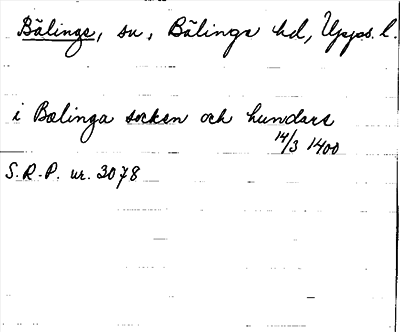 Bälinge, sn, Bälinge hd, Upps. l.
i Bælinga sokken och hundare
14/3 1400
S.R.P. nr. 3078